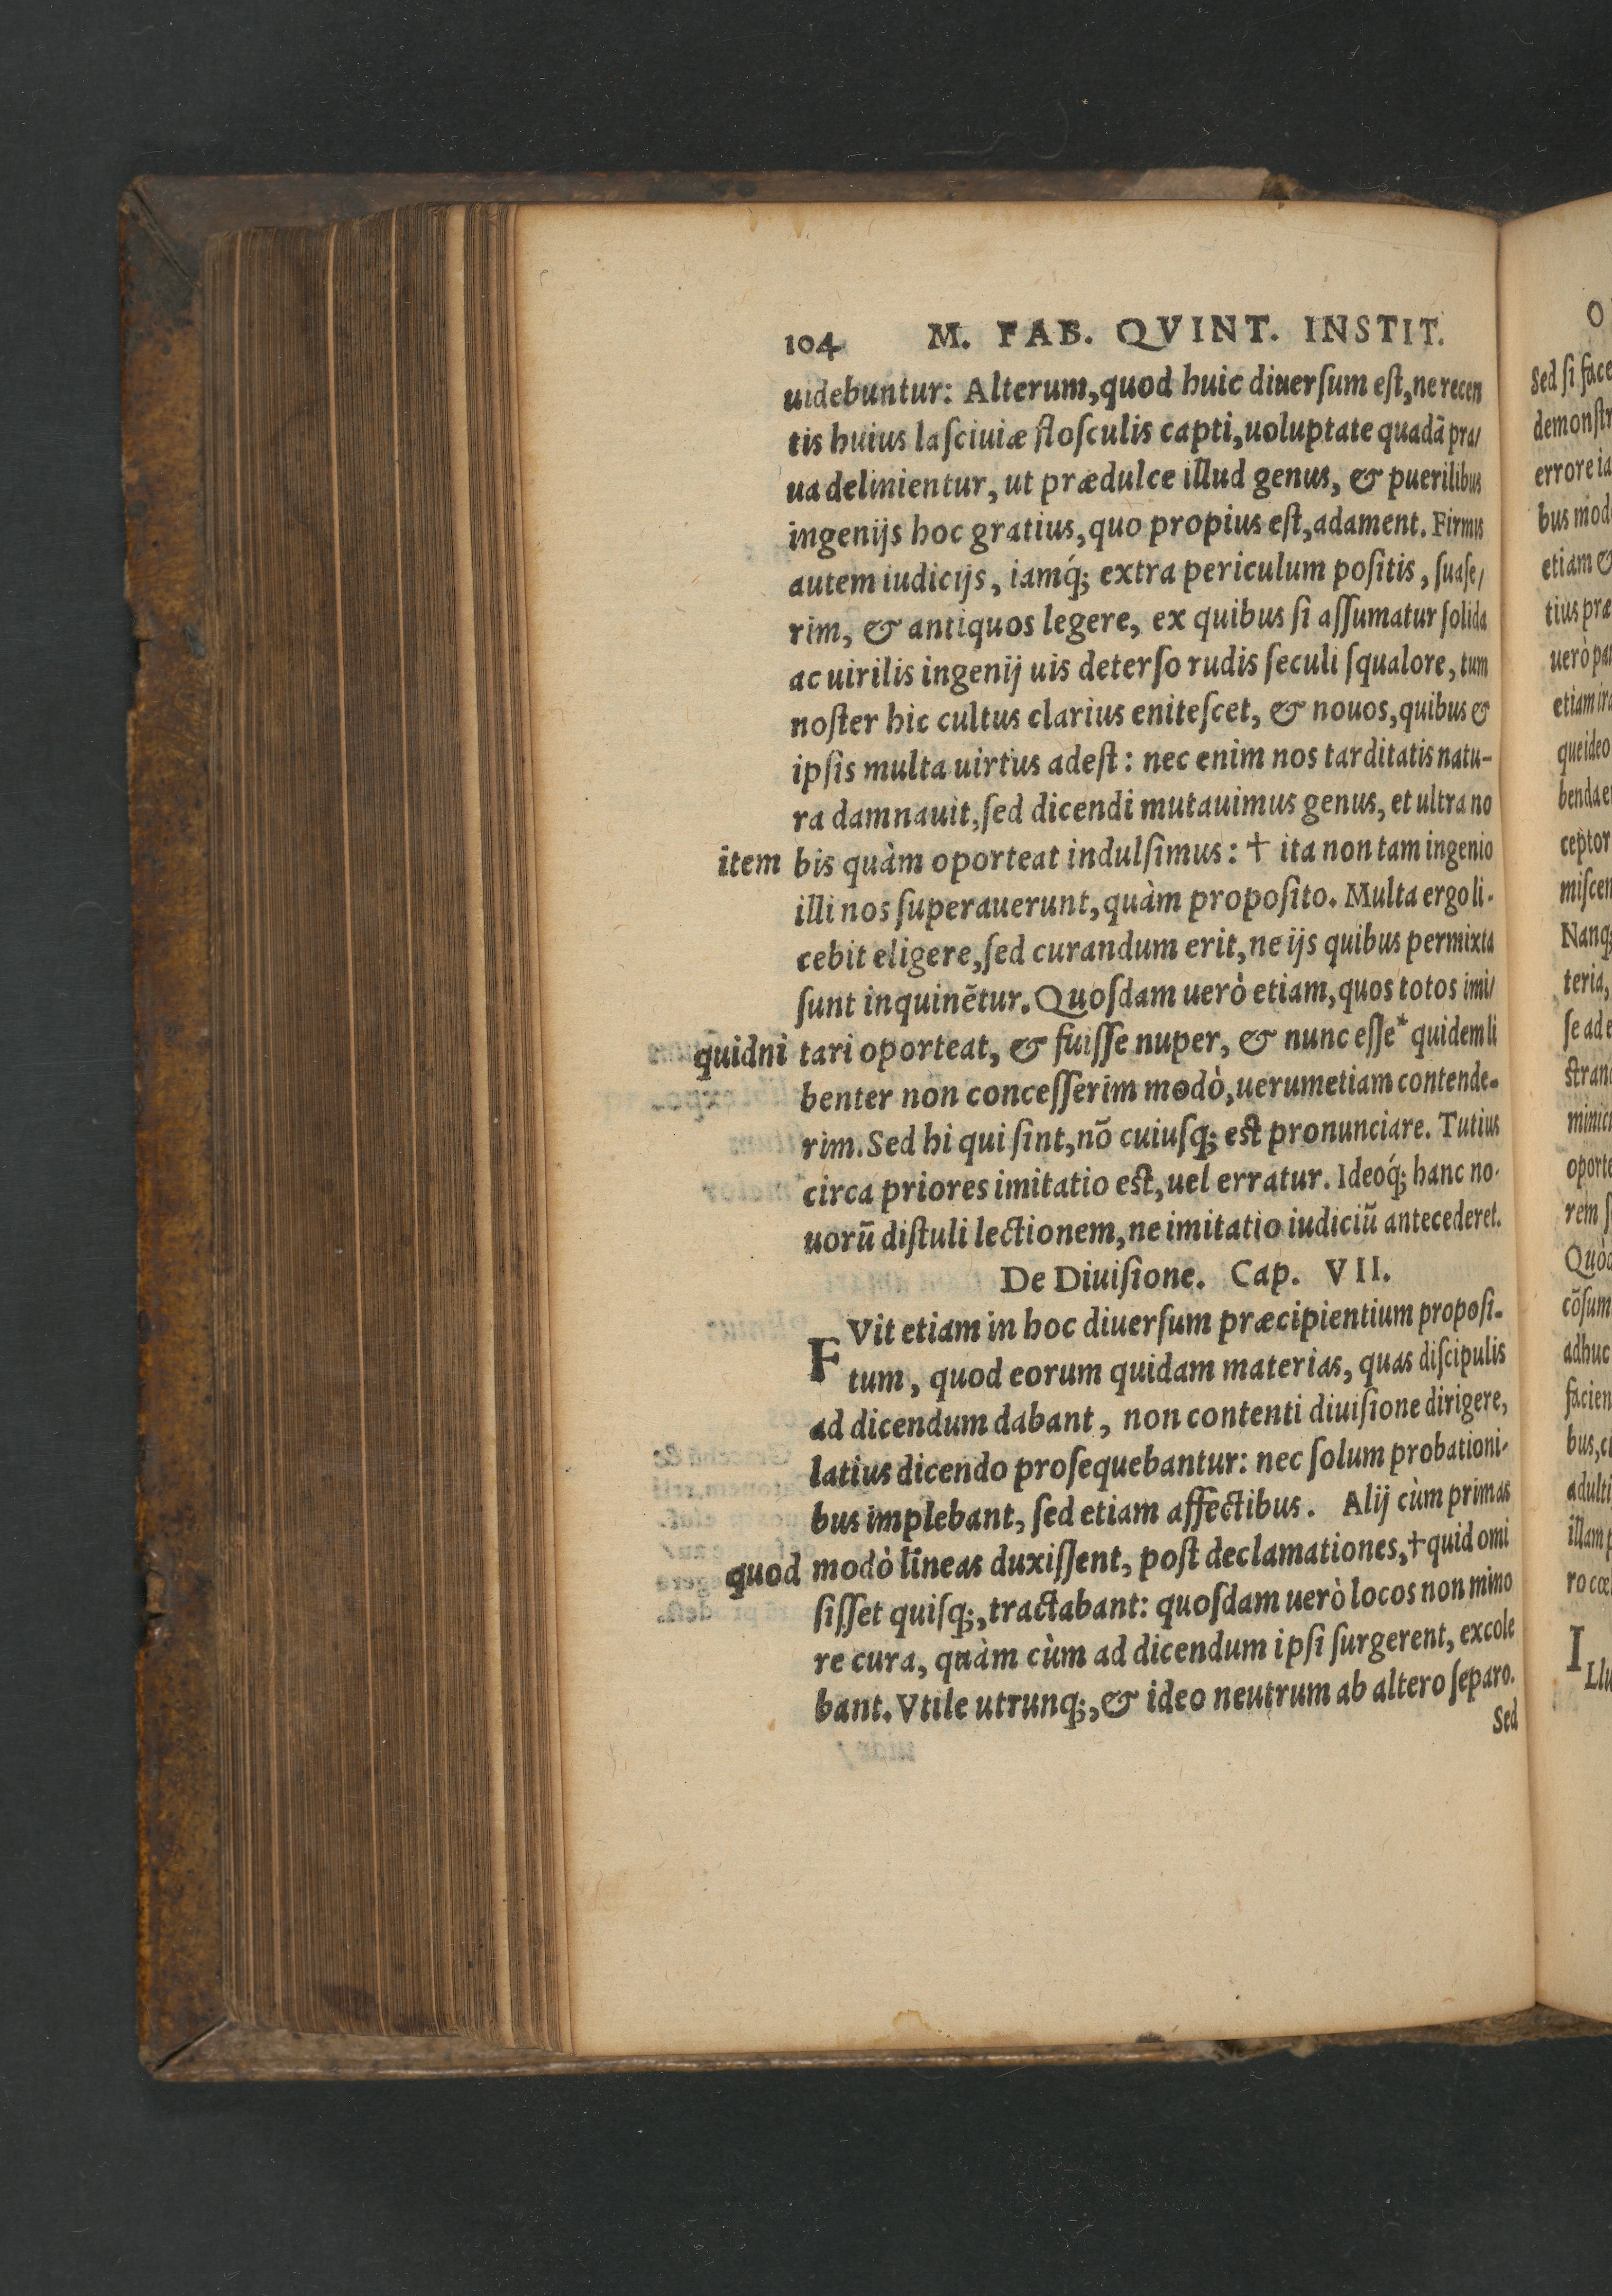 104 M. FAB. QVINT. INSTIT.
uidebuntur: Alterum, quod huic diuerſum eſt, ne recen
tis huius laſciuiæ floſculis capti, uoluptate quadã pra/
ua delinientur, ut prædulce illud genus, & puerilibus
ingenijs hoc gratius, quo propius eſt, adament. Firmis
autem iudicijs, iamq́; extra periculum poſitis, ſuaſe/
rim, & antiquos legere, ex quibus ſi aſſumatur ſolida
ac uirilis ingenij uis deterſo rudis ſeculi ſqualore, tum
noſter hic cultus clarius eniteſcet, & nouos, quibus &
ipſis multa uirtus adeſt: nec enim nos tarditatis natu-
ra damnauit, ſed dicendi mutauimus genus, et ultra no
item bis quàm oporteat indulſimus: † ita non tam ingenio
illi nos ſuperauerunt, quàm propoſito. Multa ergo li-
cebit eligere, ſed curandum erit, ne ijs quibus permixta
ſunt inquinẽtur. Quoſdam uerò etiam, quos totos imi/
quidni tari oporteat, & fuiſſe nuper, & nunc eſſe* quidem li
benter non conceſſerim modò, uerumetiam contende-
rim. Sed hi qui ſint, nõ cuiuſq; eſt pronunciare. Tutius
circa priores imitatio eſt, uel erratur. Ideoq́; hanc no-
uorũ diſtuli lectionem, ne imitatio iudiciũ antecederet.
De Diuiſione. Cap. VII.
FVit etiam in hoc diuerſum præcipientium propoſi-
tum, quod eorum quidam materias, quas diſcipulis
ad dicendum dabant, non contenti diuiſione dirigere,
latius dicendo proſequebantur: nec ſolum probationi-
bus implebant, ſed etiam affectibus. Alij cùm primas
quod modò lineas duxiſſent, poſt declamationes, † quid omi
ſiſſet quiſq;, tractabant: quoſdam uerò locos non mino
re cura, quàm cùm ad dicendum ipſi ſurgerent, excole
bant. Vtile utrunq;, & ideo neutrum ab altero ſeparo.
Sed
O
Sed ſi face
demonſtr
errore ia
bus mod
etiam &
tius præ
uerò pa
etiam ira
que ideo
benda e
ceptor
miſcen
Nanq;
teria,
ſe ad e
ſtran
oporte
rem ſ
Quòd
cõſum
adhuc
facien
bus, c
adulti
illam p
ro cœ
ILlu